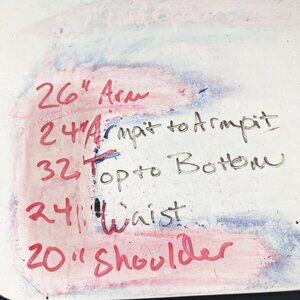 26" Arm
24" Armpit to Armpit
32" Top to Bottom
24" Waist
20" Shoulder